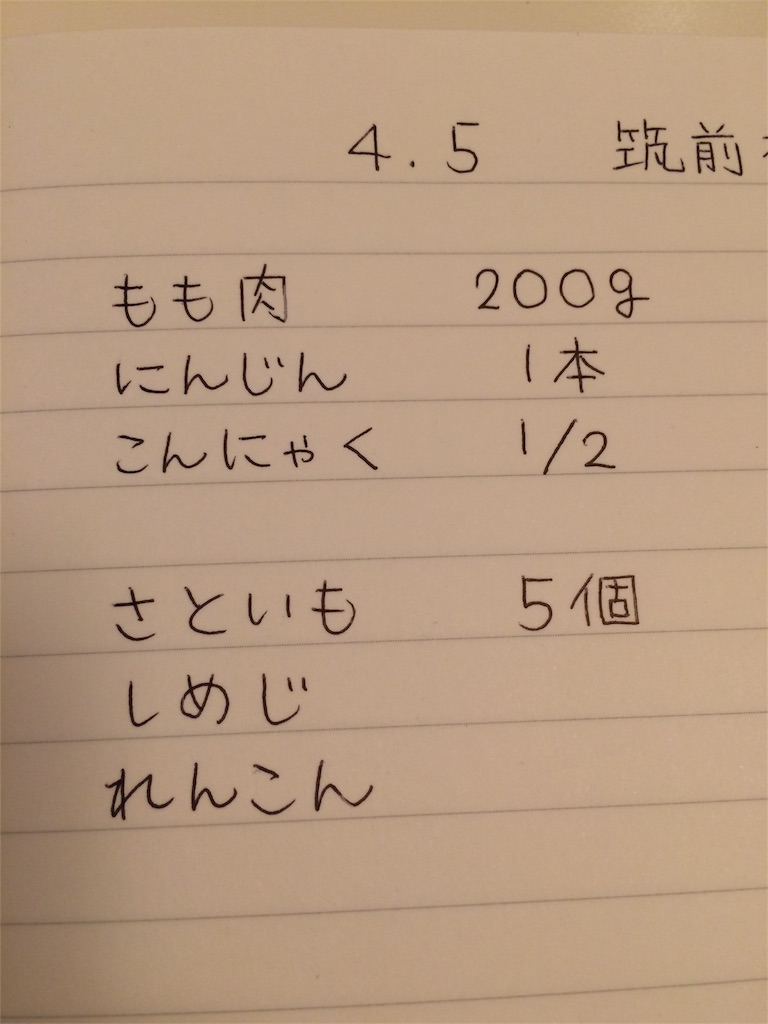 4.5 筑前
もも肉 200g
にんじん 1本
こんにゃく 1/2
さといも 5個
しめじ
れんこん